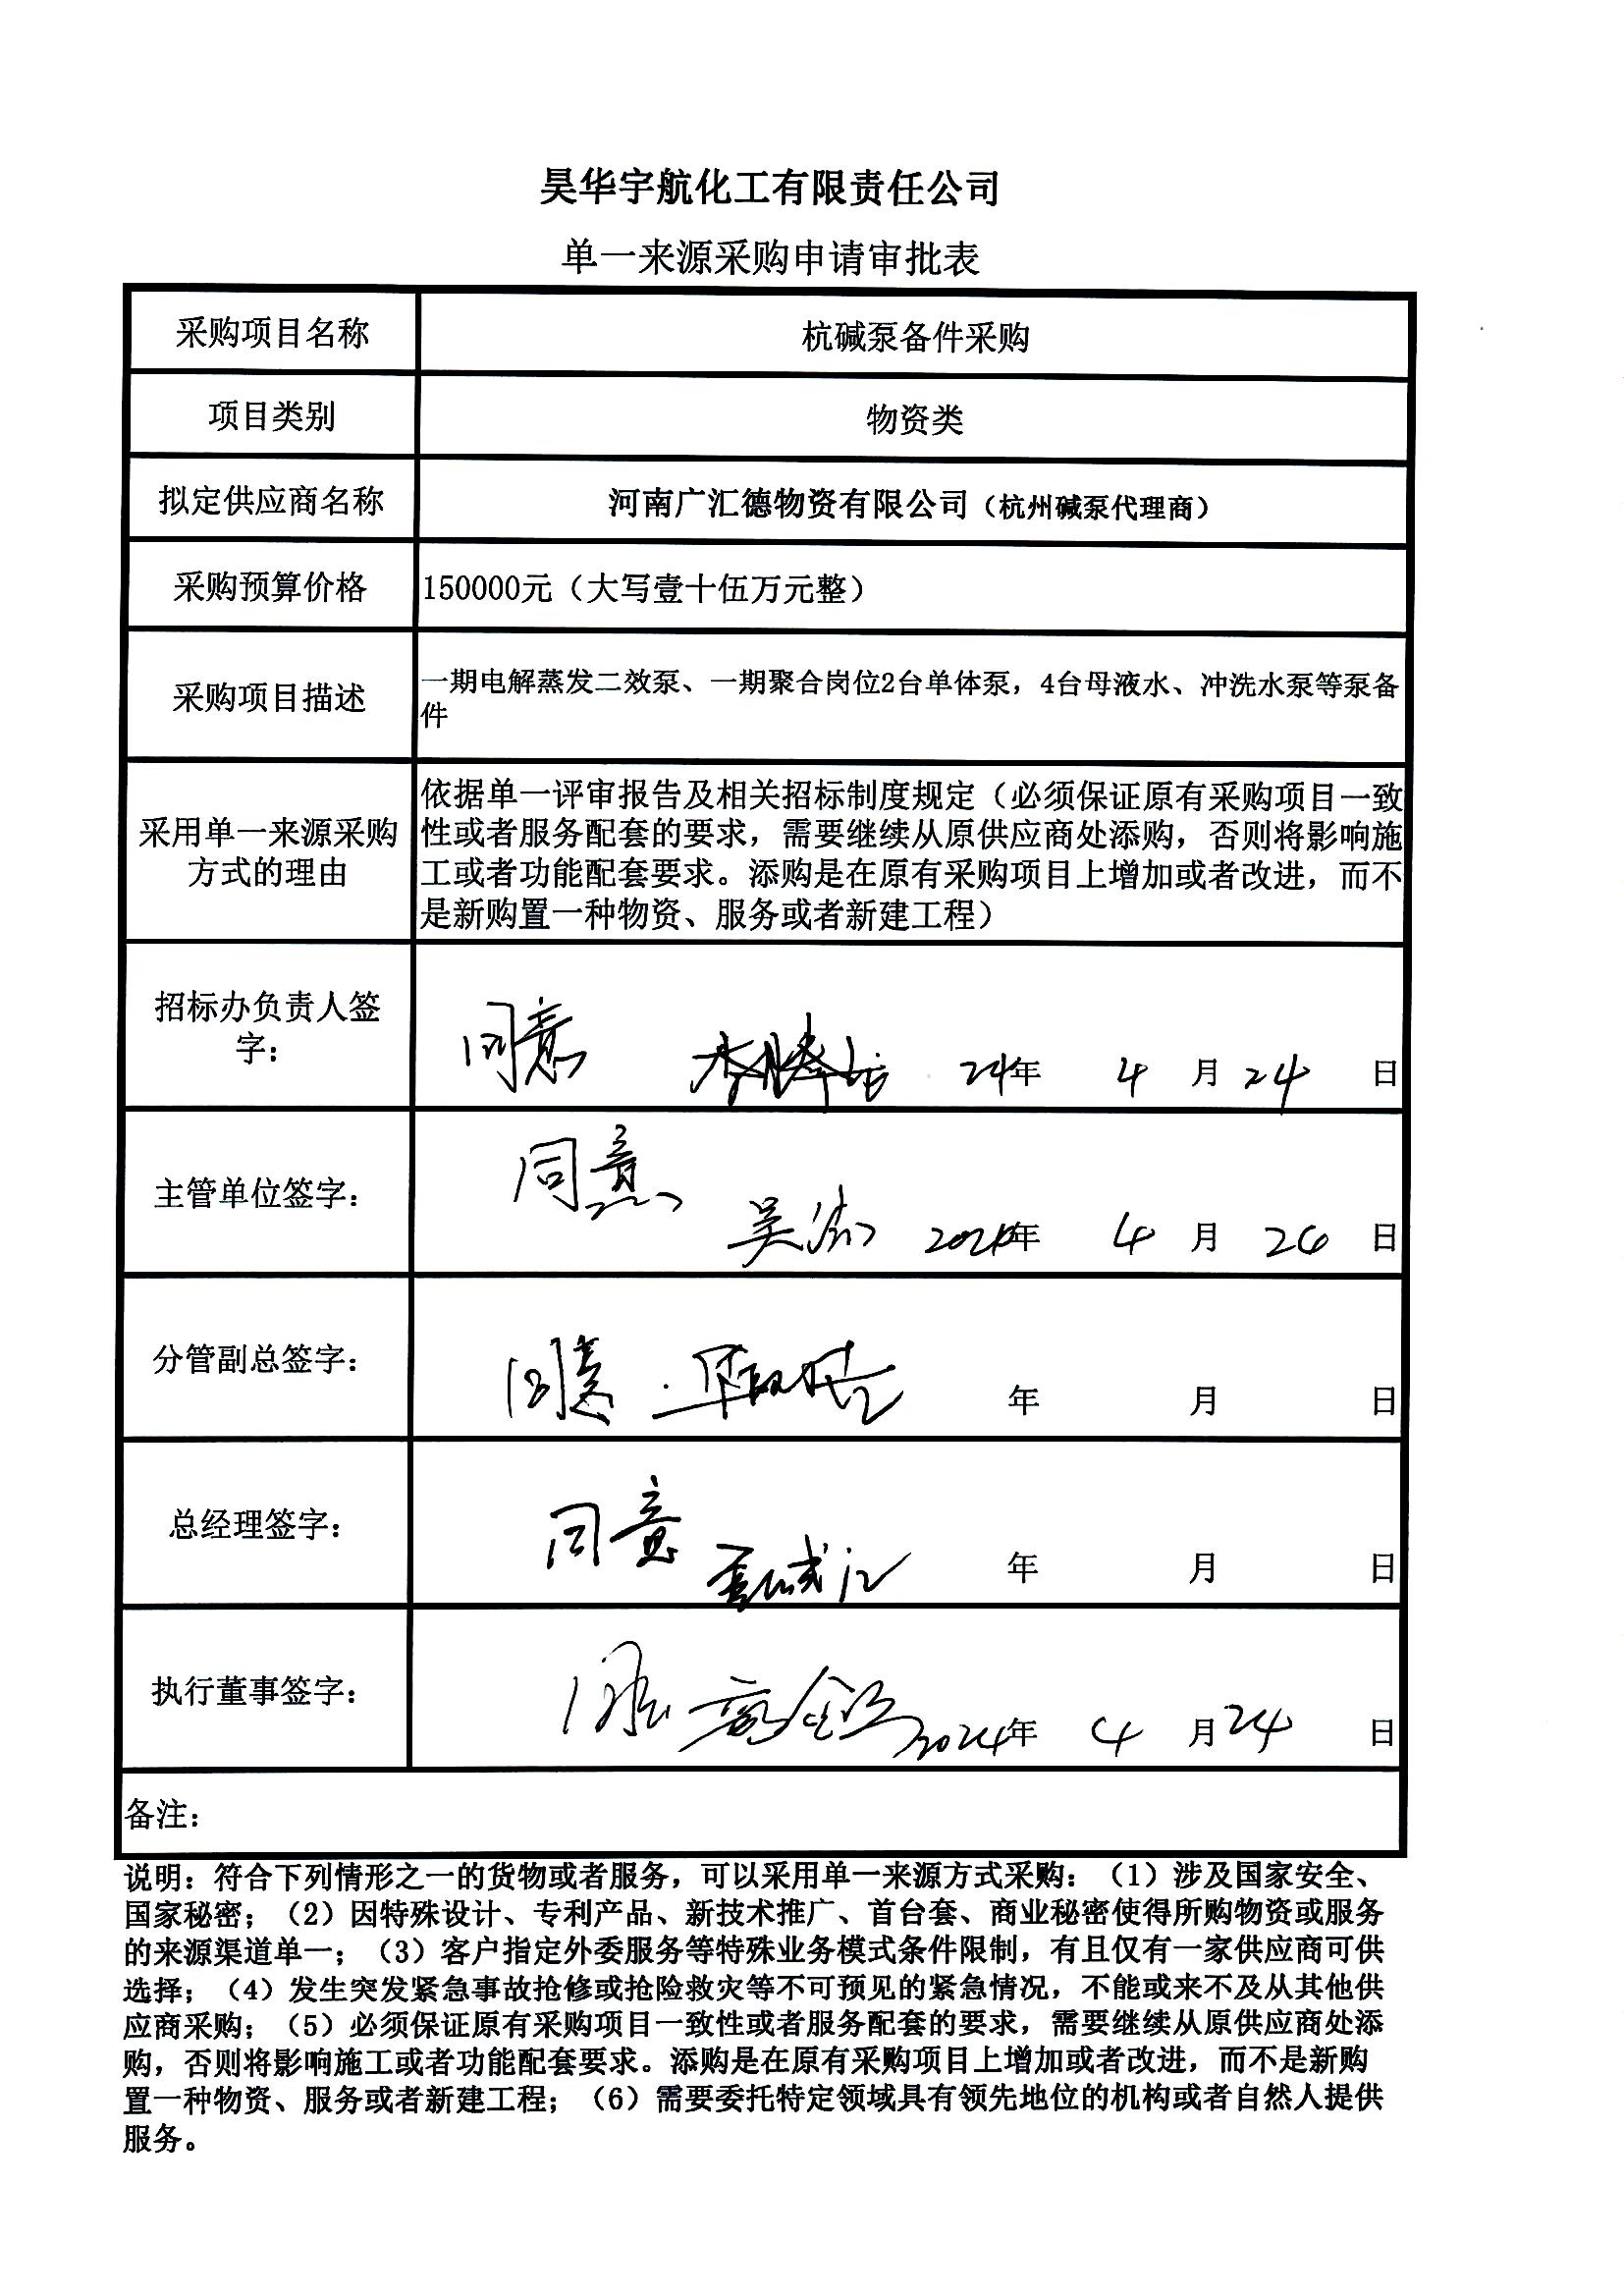 昊华宇航化工有限责任公司
单一来源采购申请审批表
采购项目名称 杭碱泵备件采购
项目类别 物资类
拟定供应商名称 河南广汇德物资有限公司（杭州碱泵代理商）
采购预算价格 150000元（大写壹十伍万元整）
采购项目描述 一期电解蒸发二效泵、一期聚合岗位2台单体泵，4台母液水、冲洗水泵等泵备
件
采用单一来源采购
方式的理由
依据单一评审报告及相关招标制度规定（必须保证原有采购项目一致
性或者服务配套的要求，需要继续从原供应商处添购，否则将影响施
工或者功能配套要求。添购是在原有采购项目上增加或者改进，而不
是新购置一种物资、服务或者新建工程）
招标办负责人签
字：
同意 24年 4月24日
主管单位签字：
同意
吴 2024年 4月 24日
分管副总签字： 同意 年 月 日
总经理签字： 同意 年 月 日
执行董事签字： 同意 2024年 4月24日
备注：
说明：符合下列情形之一的货物或者服务，可以采用单一来源方式采购：（1）涉及国家安全、
国家秘密；（2）因特殊设计、专利产品、新技术推广、首台套、商业秘密使得所购物资或服务
的来源渠道单一；（3）客户指定外委服务等特殊业务模式条件限制，有且仅有一家供应商可供
选择；（4）发生突发紧急事故抢修或抢险救灾等不可预见的紧急情况，不能或来不及从其他供
应商采购；（5）必须保证原有采购项目一致性或者服务配套的要求，需要继续从原供应商处添
购，否则将影响施工或者功能配套要求。添购是在原有采购项目上增加或者改进，而不是新购
置一种物资、服务或者新建工程；（6）需要委托特定领域具有领先地位的机构或者自然人提供
服务。